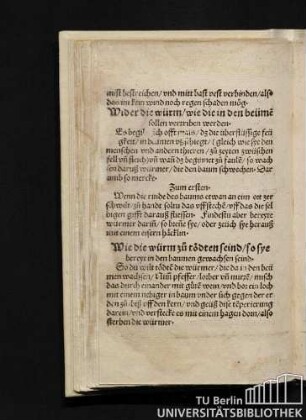 mist bestreichen/ vnd mitt bast vest verbinden/ also
das im kein wind noch regen schaden mög.
Wider die würm/ wie die in den beümē
sollen vertriben werden.
Es begibt sich offt mals/ dz die überflüssige feü
keit/ in beümen
menschen vnd andern thieren/ zů zeyten zwischen
fell vñ fleisch/ vñ wañ dz begynnet zu faulē/ so wach
sen darauß würmer/ die den baum schwechen. Dar
umb so mercke.
Zum ersten.
Wenn die rinde des baums etwan an eim
schwilt/ zů handt soltu das vff/ vff das die sel
bigen gifft darauß fliessen. Findestu aber bereyte
würmer darin/ so soltu sye/ oder zeüch sye herauß
mit einem eisern häcklin.
Wie die würm zů tödten seind/ so sye
bereyt in den baumen gewachsen seind.
So du wilt tödtē die würmer/ die da in den beü
men wachsen/ Nim pfeffer/ lorber vñ/ misch
das durch einander mit gůtē wein/ vnd bor ein loch
mit einem nebiger in baum vnder sich gegen der er
den zů/ biß off den kern/ vnd geüß dise
darein/ vnd verstecke es mit einem hagen dorn/ also
sterben die würmer.
TU Berlin
UNIVERSITÄTSBIBLIOTHEK